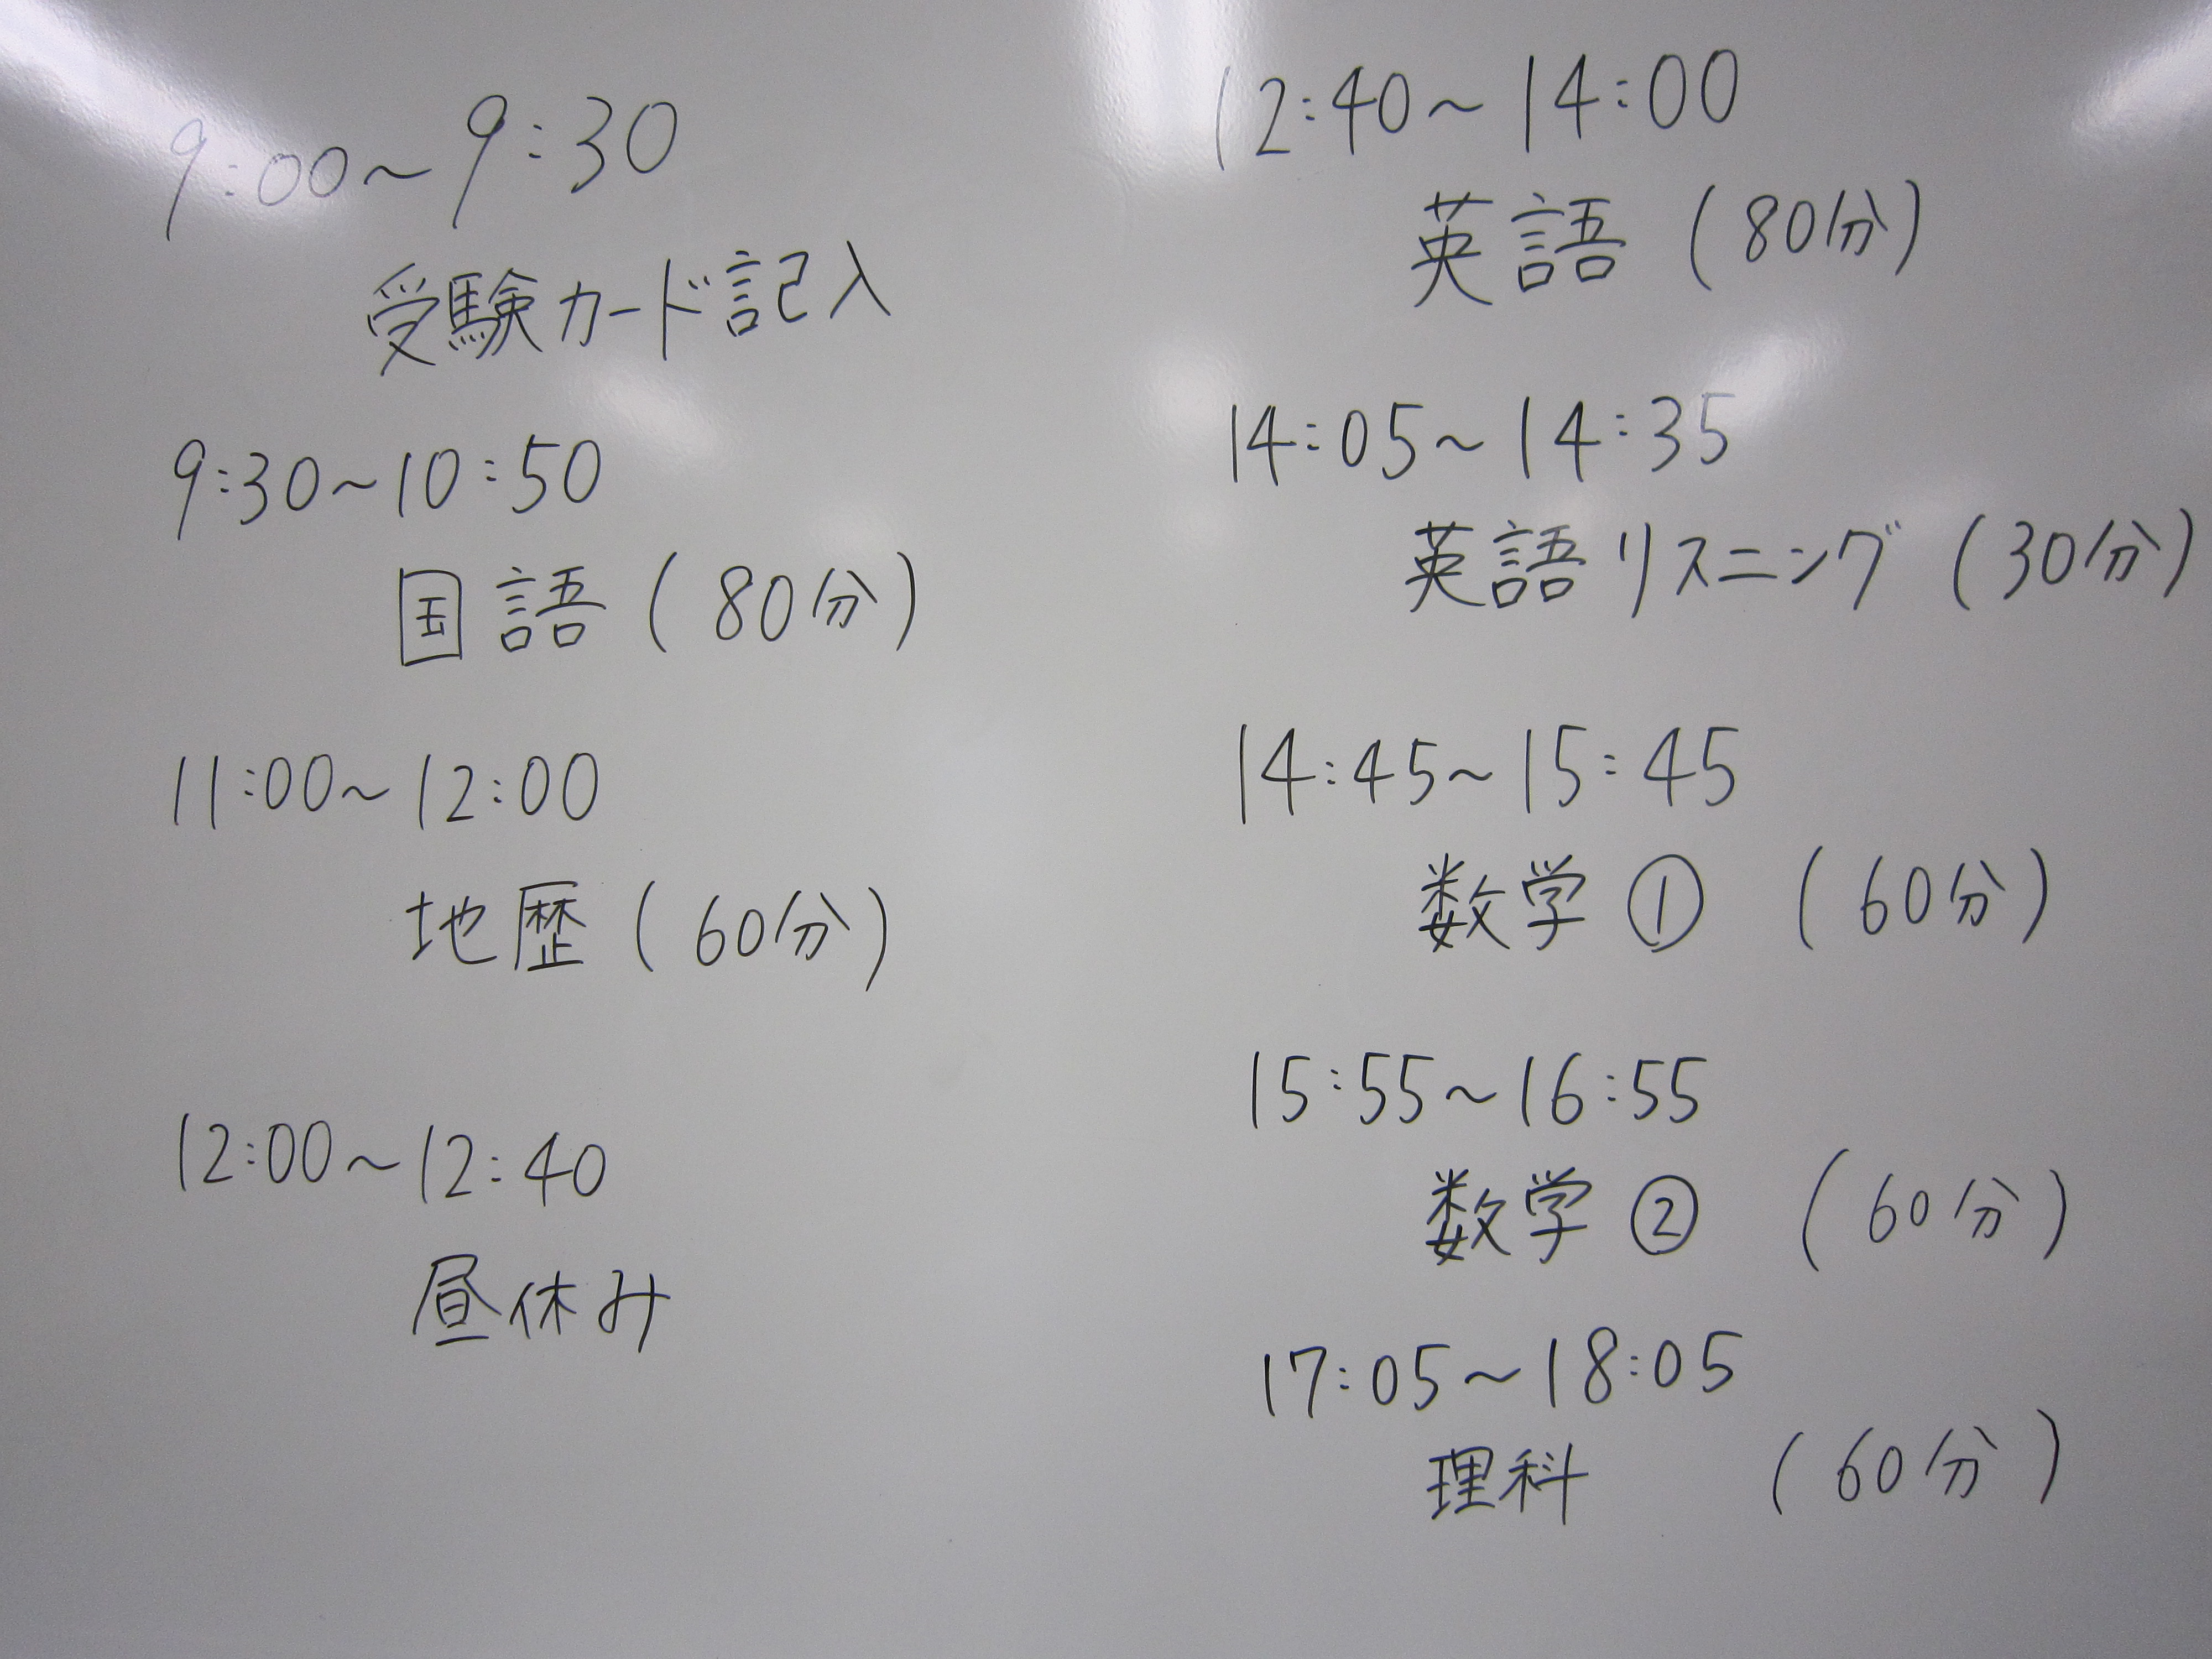 9:00～9:30
受験カード記入
9:30～10:50
国語(80分)
11:00～12:00
地歴(60分)
12:00～12:40
昼休み
12:40～14:00
英語(80分)
14:05～14:35
英語リスニング(30分)
14:45～15:45
数学① (60分)
15:55～16:55
数学② (60分)
17:05～18:05
理科 (60分)